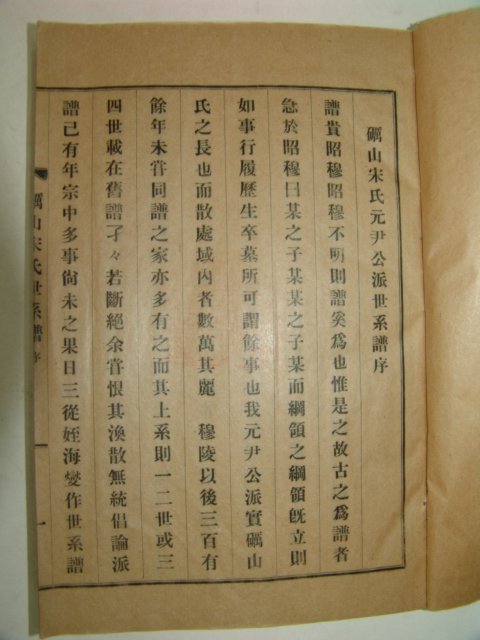 礪山宋氏元尹公派世系譜序
譜貴昭穆昭穆不明則譜奚爲也惟是之故古之爲譜者
急於昭穆曰某之子某某之子某而綱領之綱領旣立則
如事行履歷生卒墓所可謂餘事也我元尹公派實礪山
氏之長也而散處域內者數萬其麗 穆陵以後三百有
餘年未甞同譜之家亦多有之而其上系則一二世或三
四世載在舊譜孑々若斷絕余甞恨其渙散無統倡論派
譜已有年宗中多事尙未之果日三從姪海燮作世系譜
礪山宋氏世系譜 序 一